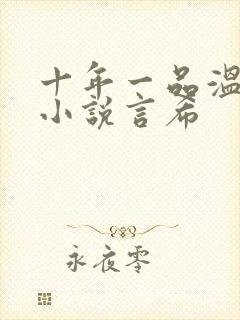 十年一品温
小说言希
永夜零